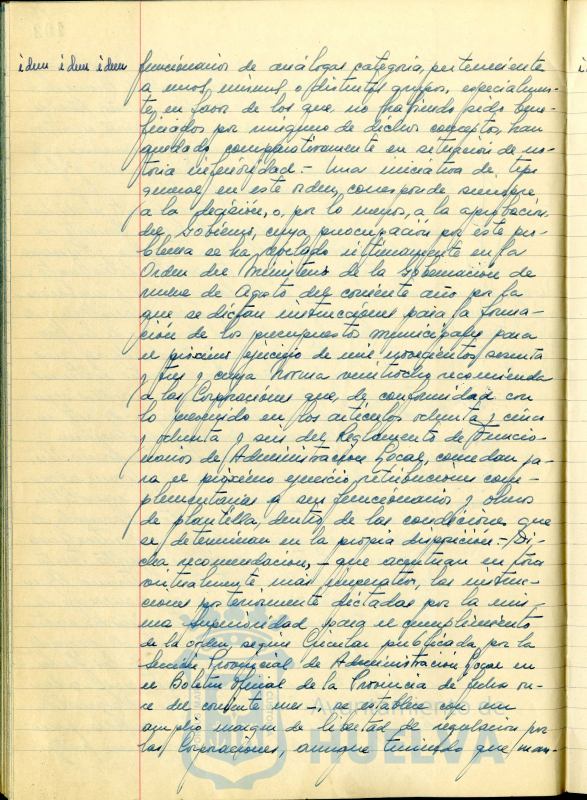 idem idem idem
funcionarios de análogas categoría, pertenecientes
a unos mismos o distintos grupos, especialmen-
te, en favor de los que, no habiendo sido bene-
ficiados por ninguno de dichos conceptos, han
quedado comparativamente en situación de no-
toria inferioridad.- Una iniciativa de tipo
general en este orden, corresponde siempre
a la decisión, o, por lo menos, a la aprobación
del Gobierno, cuya preocupación por este pro-
blema se ha reflejado últimamente en la
Orden del Ministerio de la Gobernación de
nueve de Agosto del corriente año por la
que se dictan instrucciones para la forma-
ción de los presupuestos municipales para
el próximo ejercicio de mil novecientos sesenta
y tres y cuya Norma veintiocho recomienda
a las Corporaciones que, de conformidad con
lo prevenido en los artículos ochenta y cinco
y ochenta y seis del Reglamento de Funcio-
narios de Administración Local, concedan pa-
ra el próximo ejercicio retribuciones com-
plementarias a sus funcionarios y obreros
de plantilla, dentro de las condiciones que
se determinan en la propia disposición.- Di-
cha recomendación, - que acentúan en tono
más imperativo, las instruc-
ciones posteriormente dictadas por la mis-
ma Superioridad para el cumplimiento
de la orden, según Circular publicada por la
Sección Provincial de Administración Local en
el Boletín Oficial de la Provincia de fecha on-
ce del corriente mes - se establece con un
amplio margen de libertad de regulación por
las Corporaciones, aunque teniendo que man-
Ayuntamiento de
HUELVA